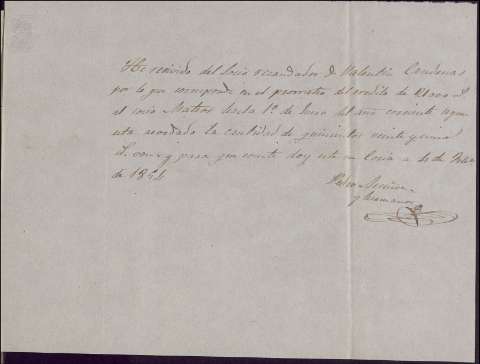 He recivido del Socio recaudador D. Valentin Cardenas
por lo que corresponde en el prorrateo del credito de
al socio Mateos hasta 1º. de Junio del año corriente segun
esta acordado la cantidad de quinientos veinte y cinco
y para que conste doy este en Coria a de
de 1854
Pedro
y hermano